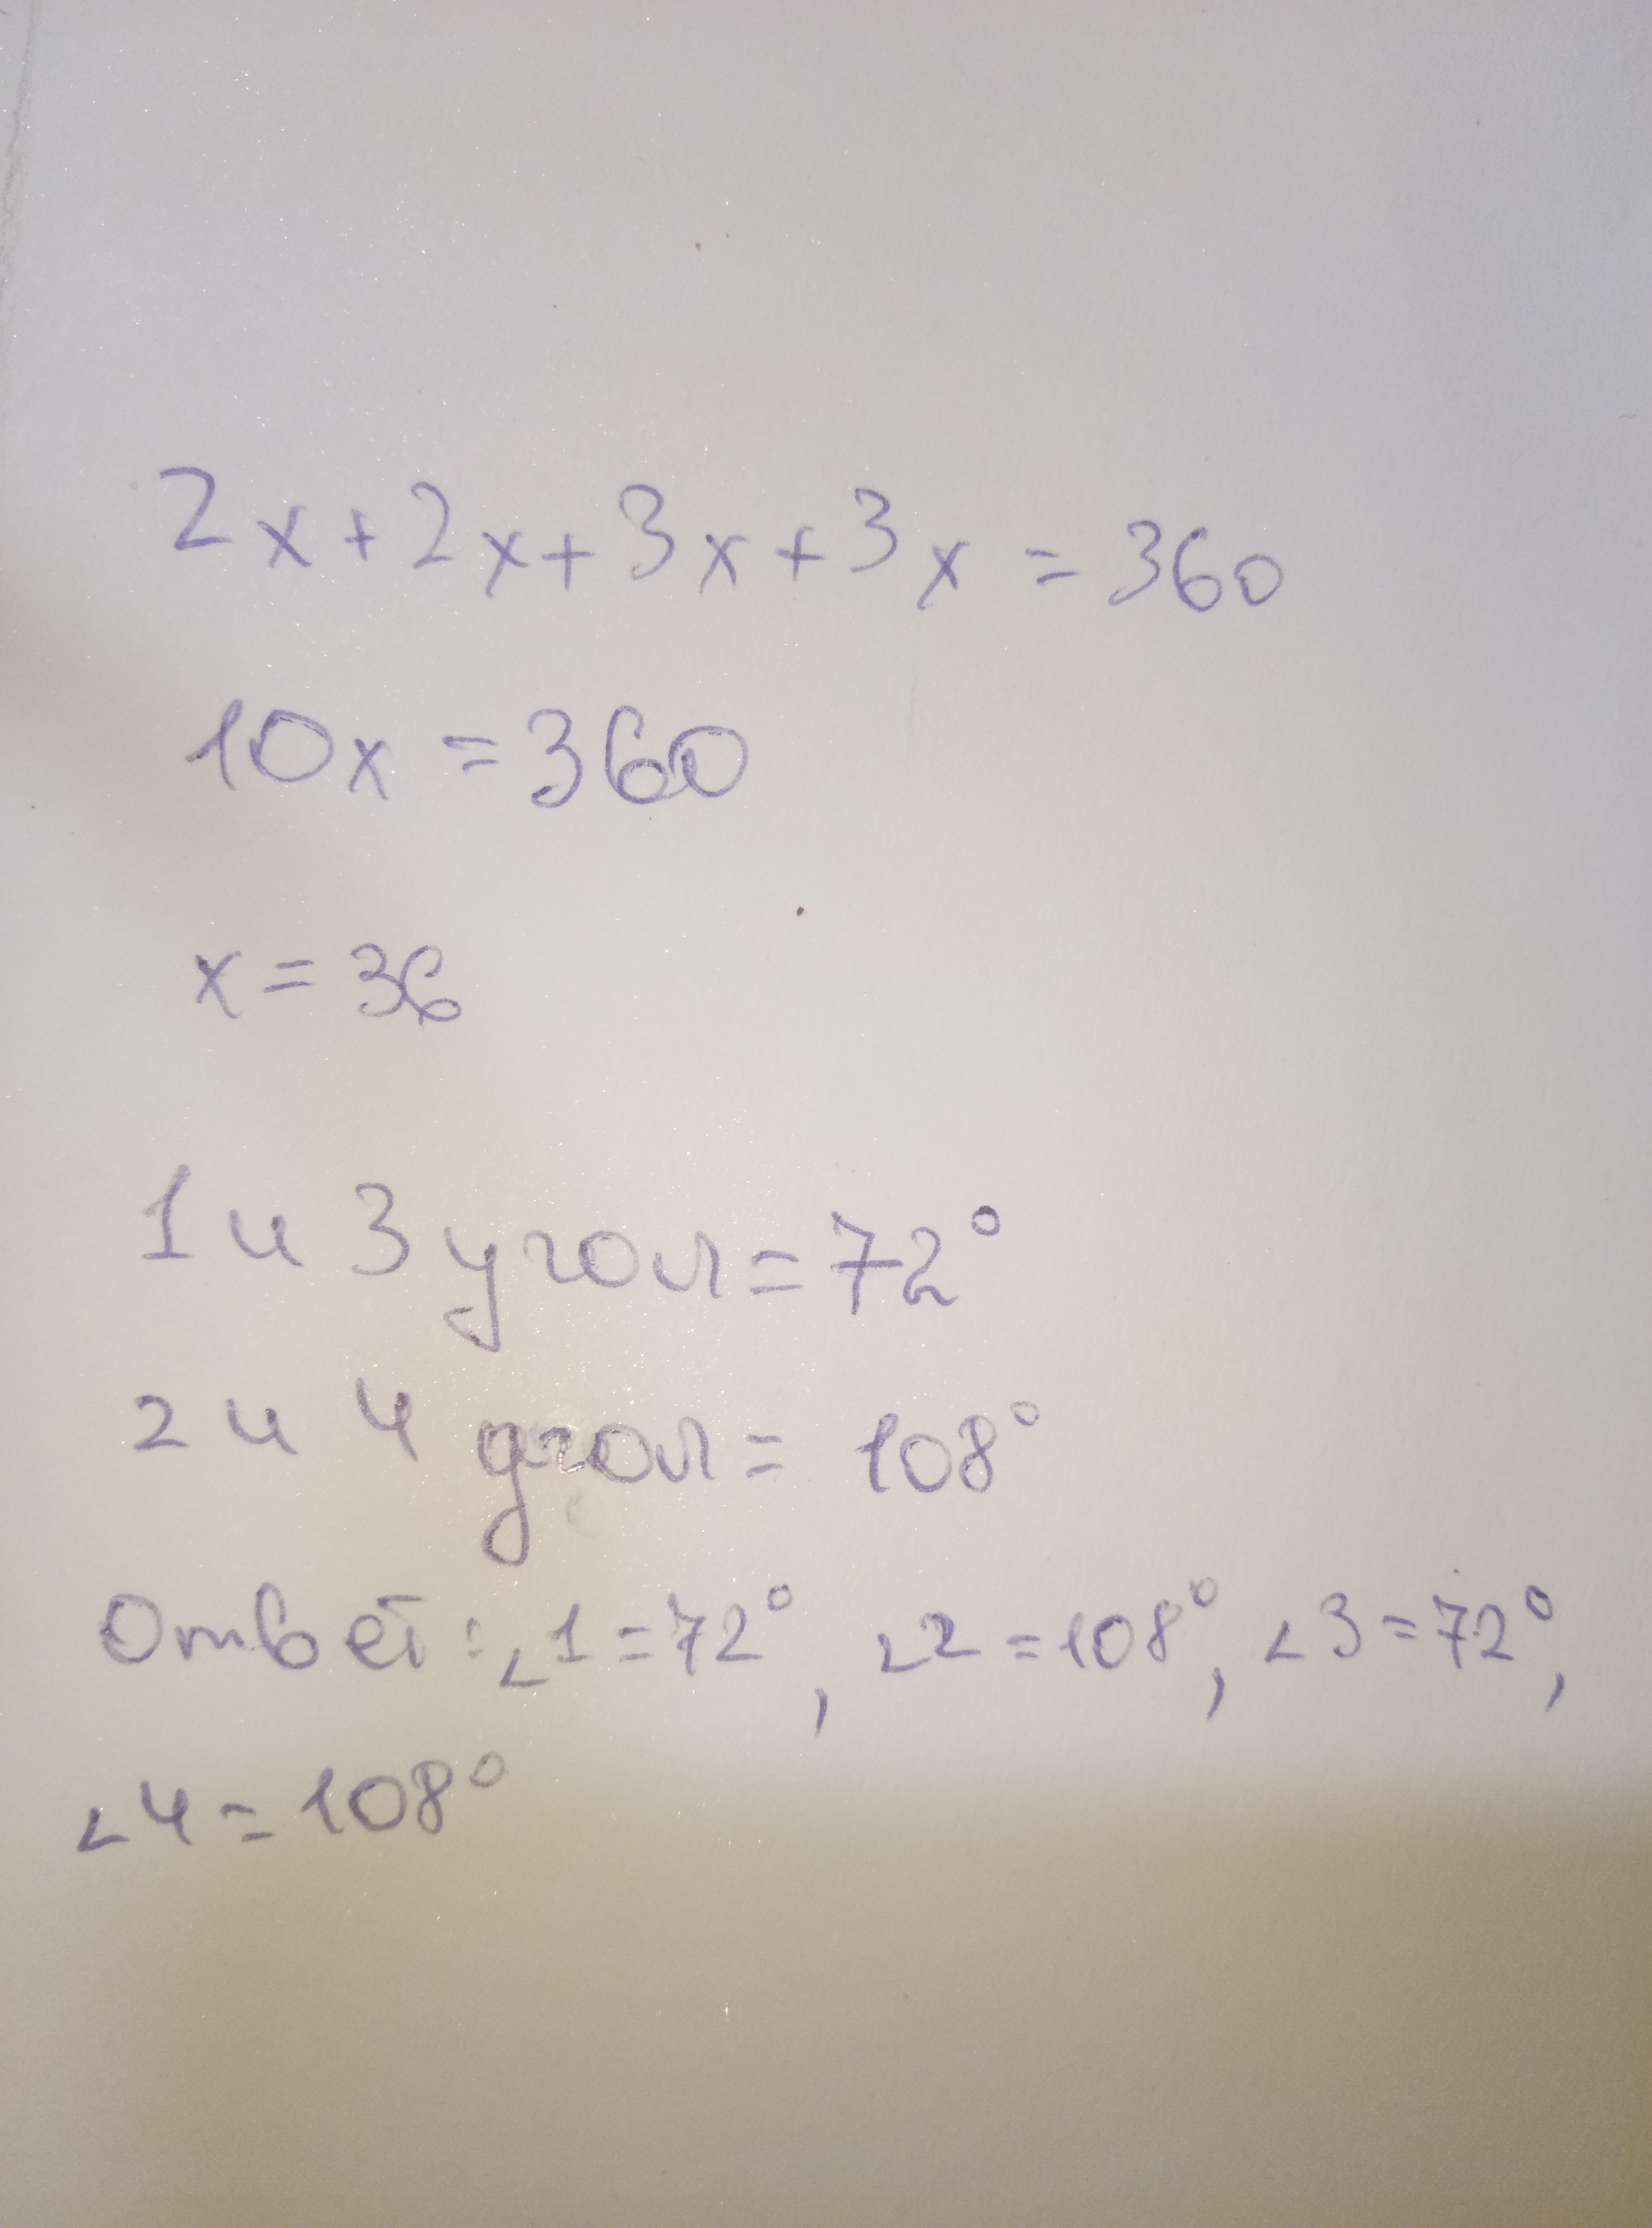 2x+2x+3x+3x=360
10x=360
x=36
1 и 3 угол=72°
2 и 4 угол=108°
Ответ: ∠1=72°, ∠2=108°, ∠3=72°,
∠4=108°